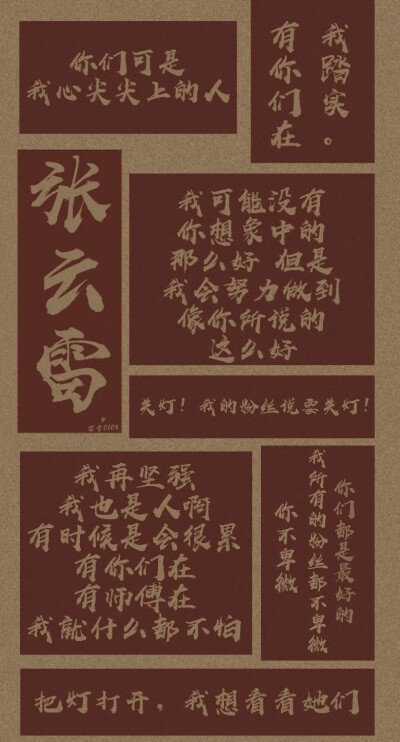 你们可是
我心尖尖上的人
我踏实。
有你们在
张云雷
我可能没有
你想象中的
那么好 但是
我会努力做到
像你所说的
这么好
关灯！我的粉丝说要关灯！
我再坚强
我也是人啊
有时候是会很累
有你们在
有师傅在
我就什么都不怕
你们都是最好的
我所有的粉丝都不卑微
你不卑微
把灯打开，我想看看她们